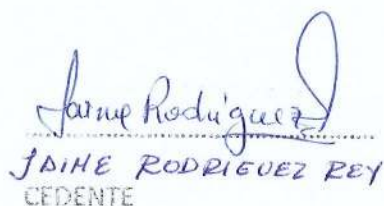 Jaime Rodriguez
JAIME RODRIGUEZ REY
CEDENTE